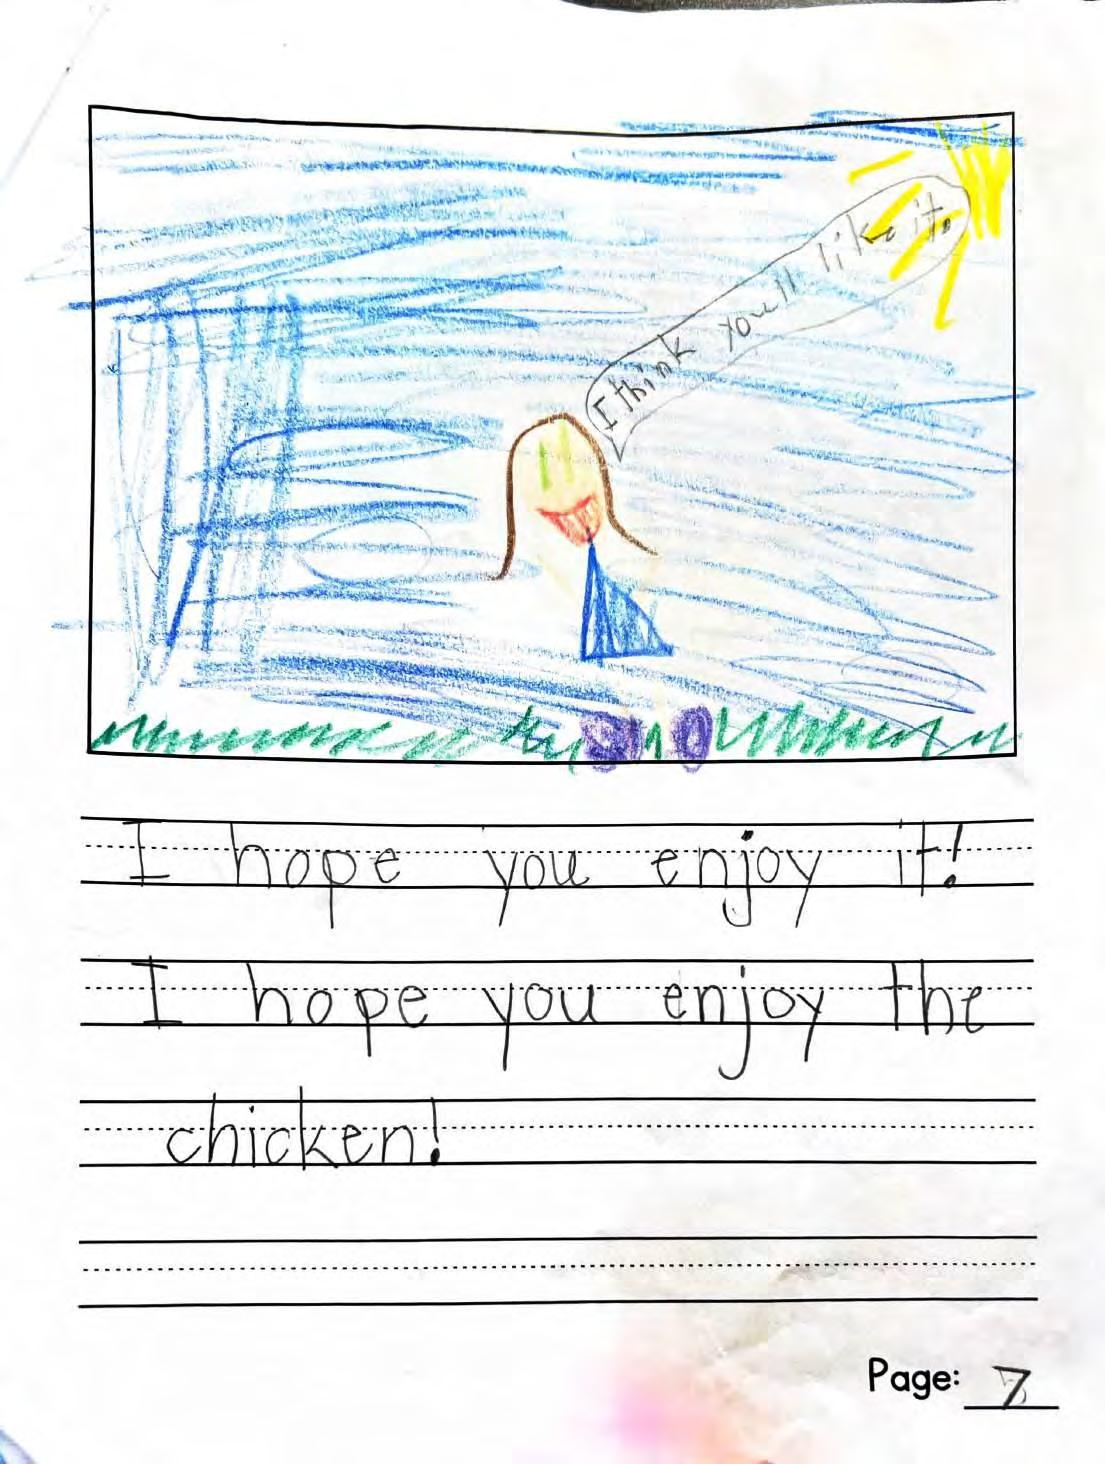 I think you'll like it.
I hope you enjoy it!
I hope you enjoy the
chicken!
Page: 7